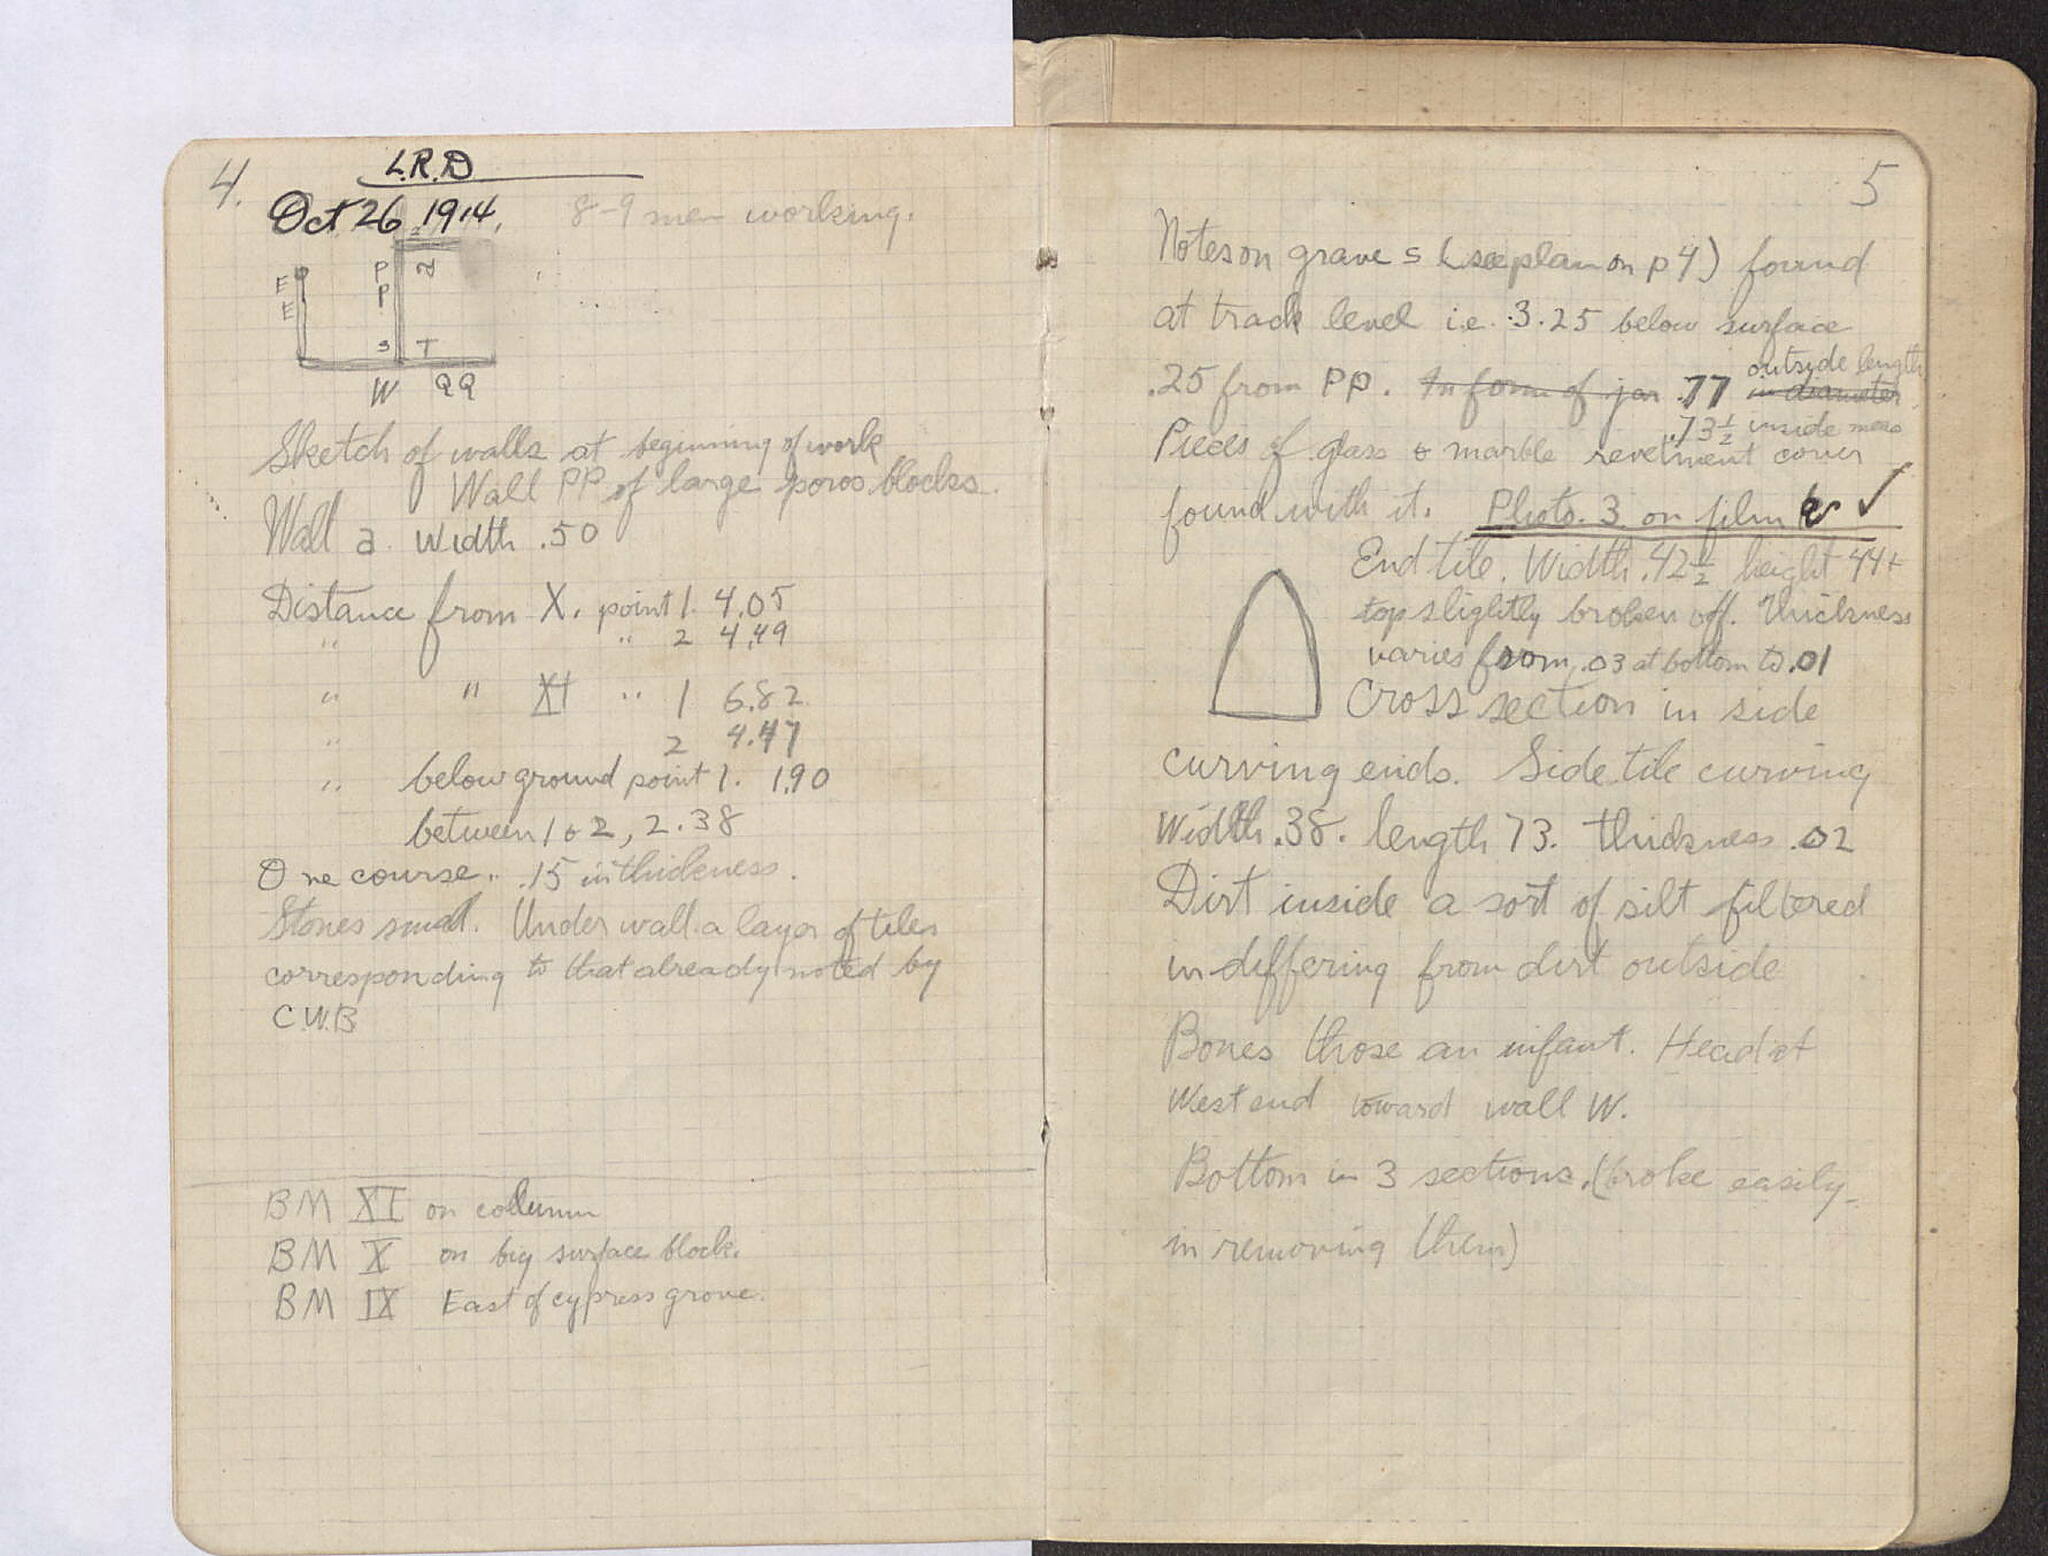 4.
L.R.D
Oct 26 1914. 8-9 men working.
E E
P P
S T
W QQ
Sketch of walls at beginning of work
Wall PP of large poros blocks.
Wall a width .50
Distance from X. point 1. 4.05
" " 2 4.49
" " XI " 1 6.82
" 2 4.47
" below ground point 1. 1.90
between 1 & 2, 2.38
One course. .15 in thickness.
Stones small. Under wall a layer of tiles
corresponding to that already noted by
C.W.B
BM XI on column
BM X on big surface block.
BM IX East of cypress grove.
5
Notes on grave S (see plan on p 4) found
at track level i.e. 3.25 below surface
.25 from PP. In form of jar .77 in diameter outside length
.73½ inside meas
Pieces of glass & marble revetment cover
found with it. Photo. 3 on film ✓
End tile. Width .42½ height 44+
top slightly broken off. Thickness
varies from .03 at bottom to .01
Cross section in side
curving ends. Side tile curving
Width .38. length 73. thickness .02
Dirt inside a sort of silt filtered
in differing from dirt outside
Bones those an infant. Head at
West end toward wall W.
Bottom in 3 sections. (broke easily
in removing them)